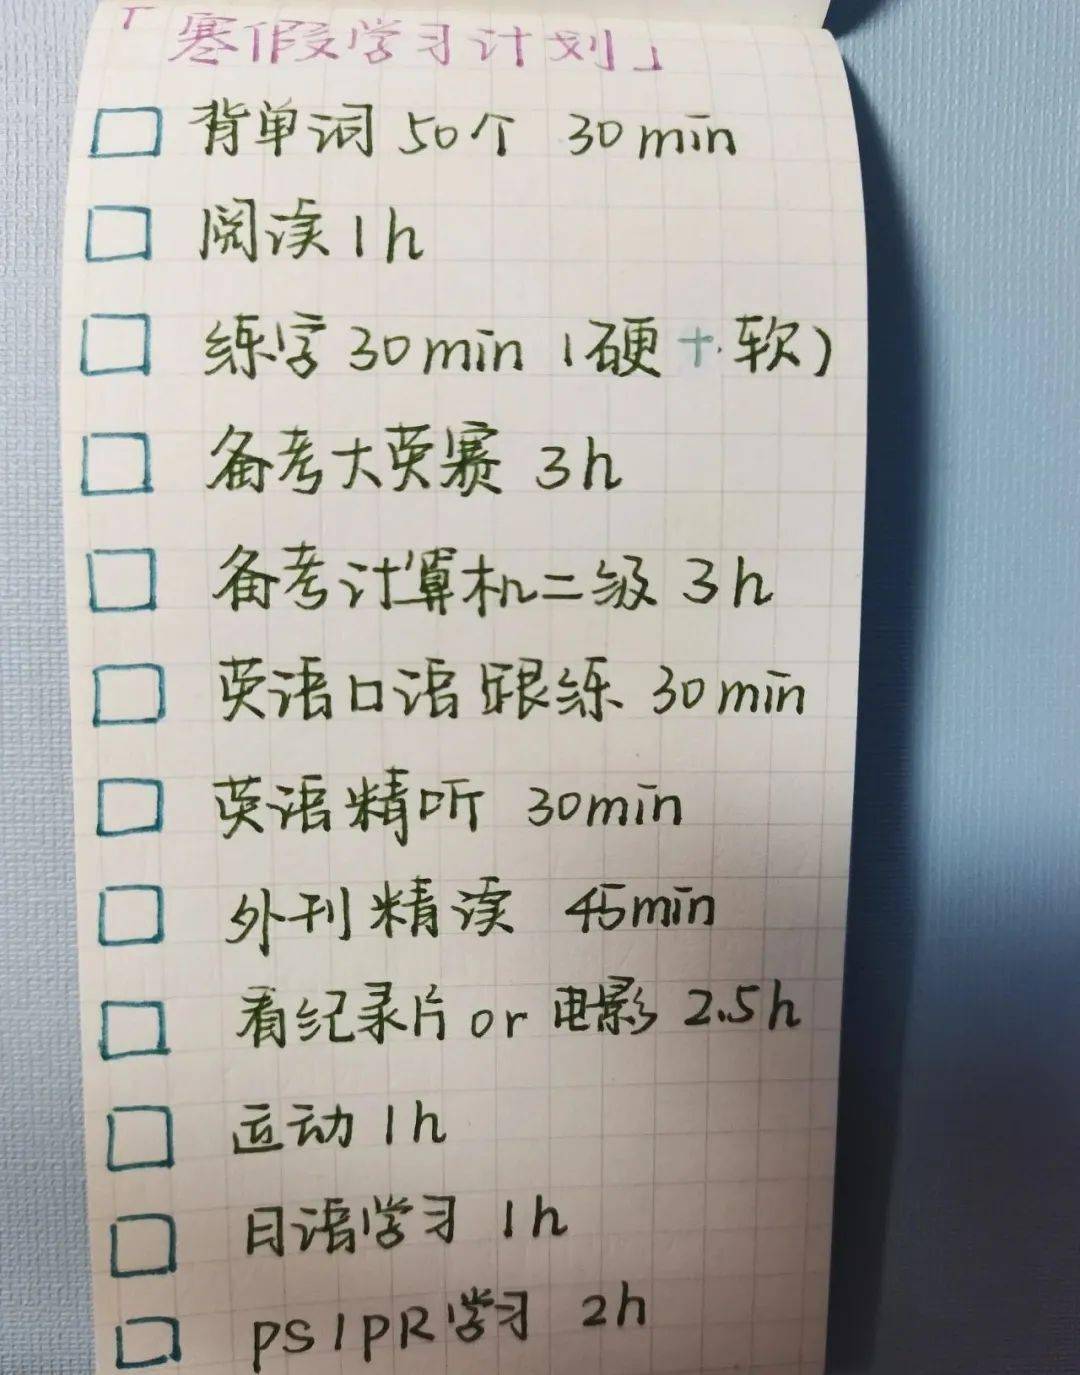 「寒假学习计划」
背单词 50个 30min
阅读 1h
练字 30min (硬+软)
备考大英赛 3h
备考计算机二级 3h
英语口语跟练 30min
英语精听 30min
外刊精读 45min
看纪录片 or 电影 2.5h
运动 1h
日语学习 1h
PS/PR学习 2h